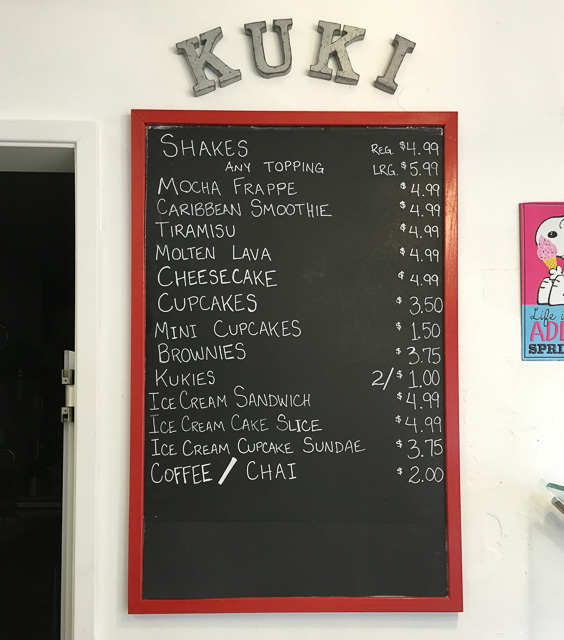 KUKI
SHAKES REG. $4.99
ANY TOPPING LRG. $5.99
MOCHA FRAPPE $4.99
CARIBBEAN SMOOTHIE $4.99
TIRAMISU $4.99
MOLTEN LAVA $4.99
CHEESECAKE $4.99
CUPCAKES $3.50
MINI CUPCAKES $1.50
BROWNIES $3.75
KUKIES 2/$1.00
ICE CREAM SANDWICH $4.99
ICE CREAM CAKE SLICE $4.99
ICE CREAM CUPCAKE SUNDAE $3.75
COFFEE / CHAI $2.00
Life